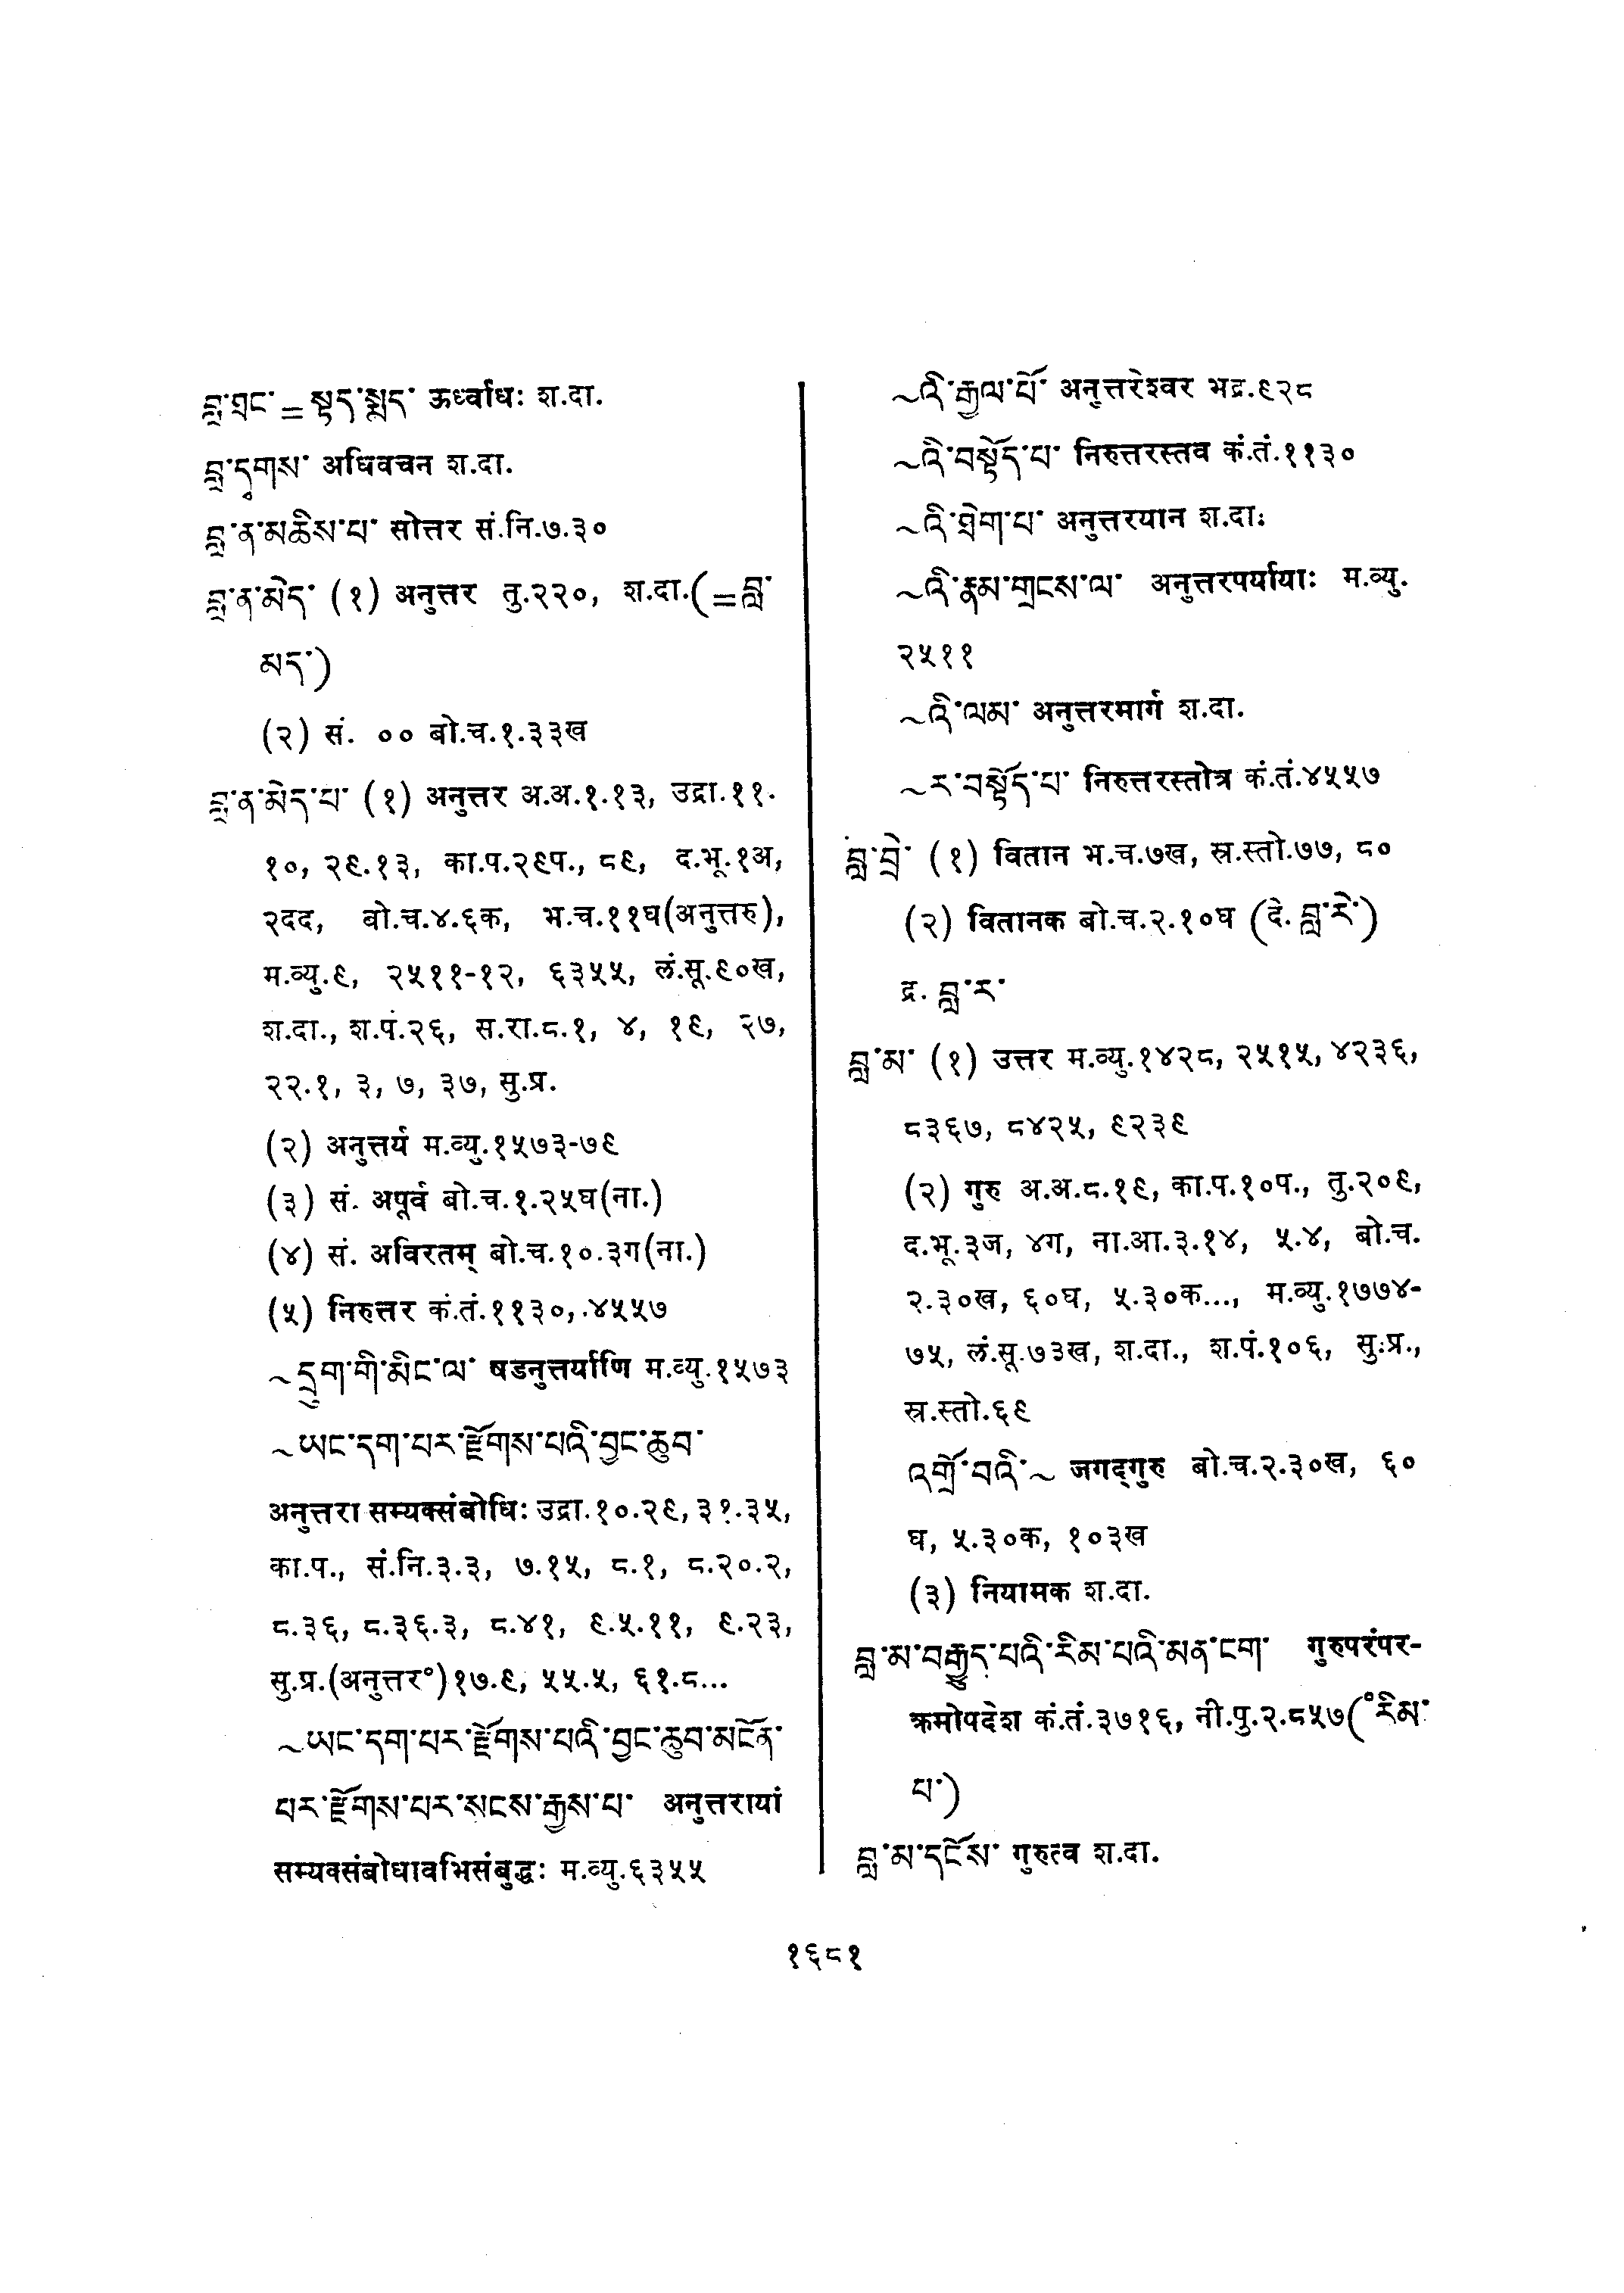 བླ་ཐང་ = སྟད་སྨད་ ऊर्ध्वाधः श.दा.
བླ་དྭགས་ अधिवचन श.दा.
བླ་ན་མཆིས་པ་ सोत्तर सं.नि.७.३०
བླ་ན་མེད་ (१) अनुत्तर तु.२२०, श.दा.(=བླ་
མད་)
(२) सं. ०० बो.च.१.३३ख
བླ་ན་མེད་པ་ (१) अनुत्तर अ.अ.१.१३, उद्रा.११.
१०, २९.१३, का.प.२९प., ८९, द.भू.१अ,
२दद, बो.च.४.६क, भ.च.११घ(अनुत्तरु),
म.व्यु.९, २५११-१२, ६३५५, लं.सू.९०ख,
श.दा., श.पं.२६, स.रा.८.१, ४, १९, २७,
२२.१, ३, ७, ३७, सु.प्र.
(२) अनुत्तर्य म.व्यु.१५७३-७९
(३) सं. अपूर्व बो.च.१.२५घ(ना.)
(४) सं. अविरतम् बो.च.१०.३ग(ना.)
(५) निरुत्तर कं.तं.११३०, ४५५७
~དྲུག་གི་མིང་ལ་ षडनुत्तर्याणि म.व्यु.१५७३
~ཡང་དག་པར་རྫོགས་པའི་བྱང་ཆུབ་
अनुत्तरा सम्यक्संबोधिः उद्रा.१०.२९, ३१.३५,
का.प., सं.नि.३.३, ७.१५, ८.१, ८.२०.२,
८.३६, ८.३६.३, ८.४१, ९.५.११, ९.२३,
सु.प्र.(अनुत्तर°)१७.९, ५५.५, ६१.८...
~ཡང་དག་པར་རྫོགས་པའི་བྱང་ཆུབ་མངོན་
པར་རྫོགས་པར་སངས་རྒྱས་པ་ अनुत्तरायां
सम्यक्संबोधावभिसंबुद्धः म.व्यु.६३५५
~འི་རྒྱལ་པོ་ अनुत्तरेश्वर भद्र.९२८
~འི་བསྟོད་པ་ निरुत्तरस्तव कं.तं.११३०
~འི་ཐེག་པ་ अनुत्तरयान श.दा.
~འི་རྣམ་གྲངས་ལ་ अनुत्तरपर्यायाः म.व्यु.
२५११
~འི་ལམ་ अनुत्तरमार्ग श.दा.
~ར་བསྟོད་པ་ निरुत्तरस्तोत्र कं.तं.४५५७
བླ་བྲེ་ (१) वितान भ.च.७ख, स्र.स्तो.७७, ८०
(२) वितानक बो.च.२.१०घ (दे. བླ་རེ་)
द्र. བླ་ར་
བླ་མ་ (१) उत्तर म.व्यु.१४२८, २५१५, ४२३६,
८३६७, ८४२५, ९२३९
(२) गुरु अ.अ.८.१९, का.प.१०प., तु.२०९,
द.भू.३ज, ४ग, ना.आ.३.१४, ५.४, बो.च.
२.३०ख, ६०घ, ५.३०क..., म.व्यु.१७७४-
७५, लं.सू.७३ख, श.दा., श.पं.१०६, सु.प्र.,
स्र.स्तो.६९
འགྲོ་བའི་~ जगद्गुरु बो.च.२.३०ख, ६०
घ, ५.३०क, १०३ख
(३) नियामक श.दा.
བླ་མ་བརྒྱུད་པའི་རིམ་པའི་མན་ངག་ गुरुपरंपर-
क्रमोपदेश कं.तं.३७१६, नी.पु.२.८५७(°རིམ་
པ་)
བླ་མ་དངོས་ गुरुत्व श.दा.
१६८१